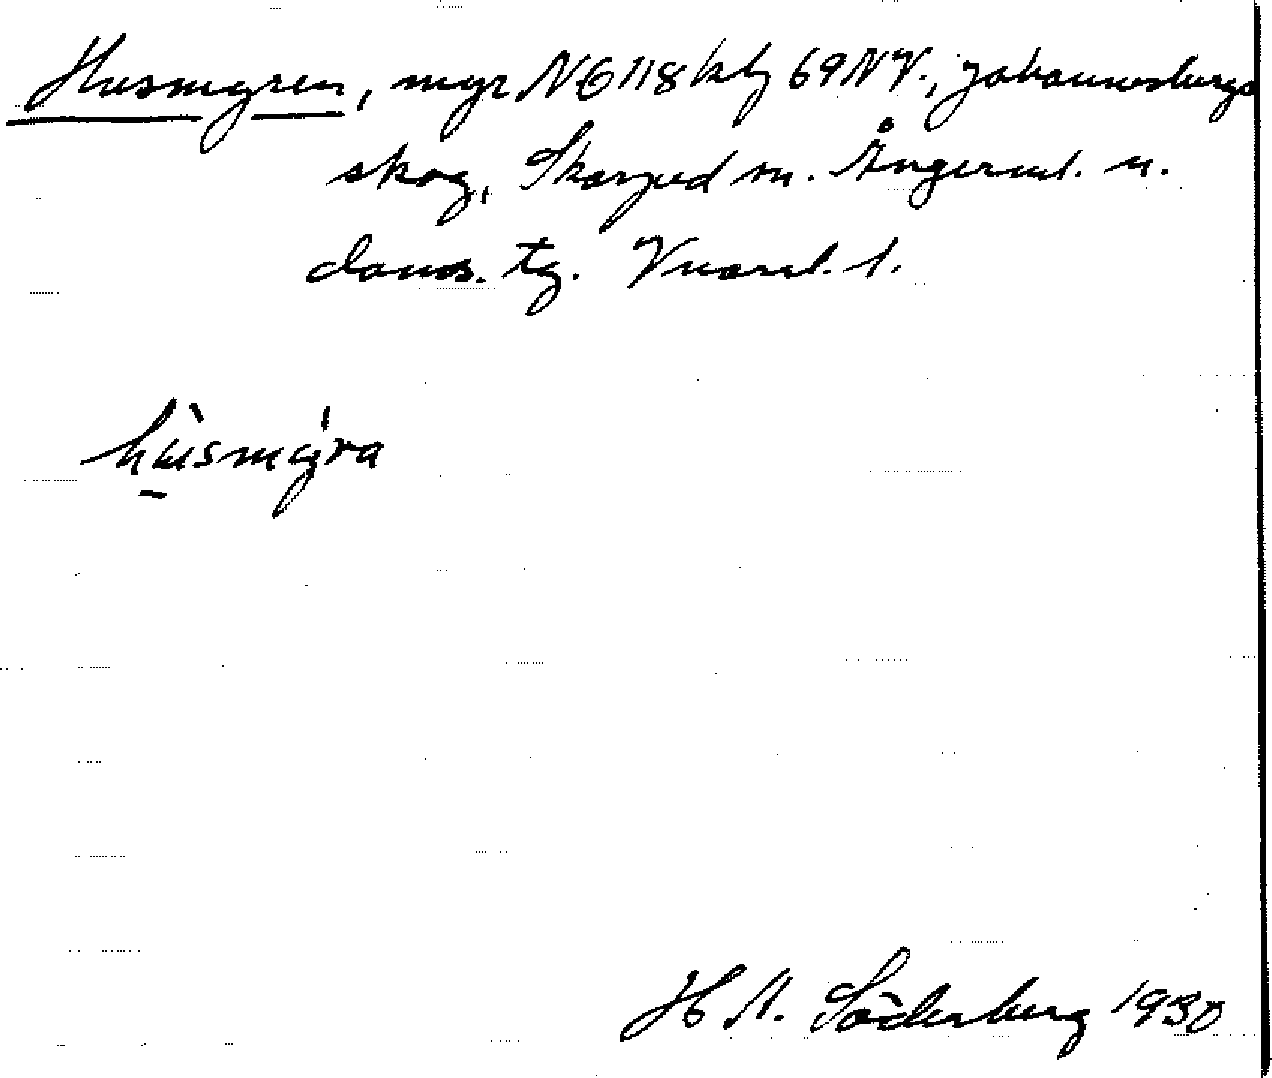 Husmyren, myr NG 118 kbl 69 NV., Johannesbergs
skog, Skorped sn. Ångerml. n.
doms. tg. Vnorrl. l.
hùsmýra
H N. Söderberg 1930